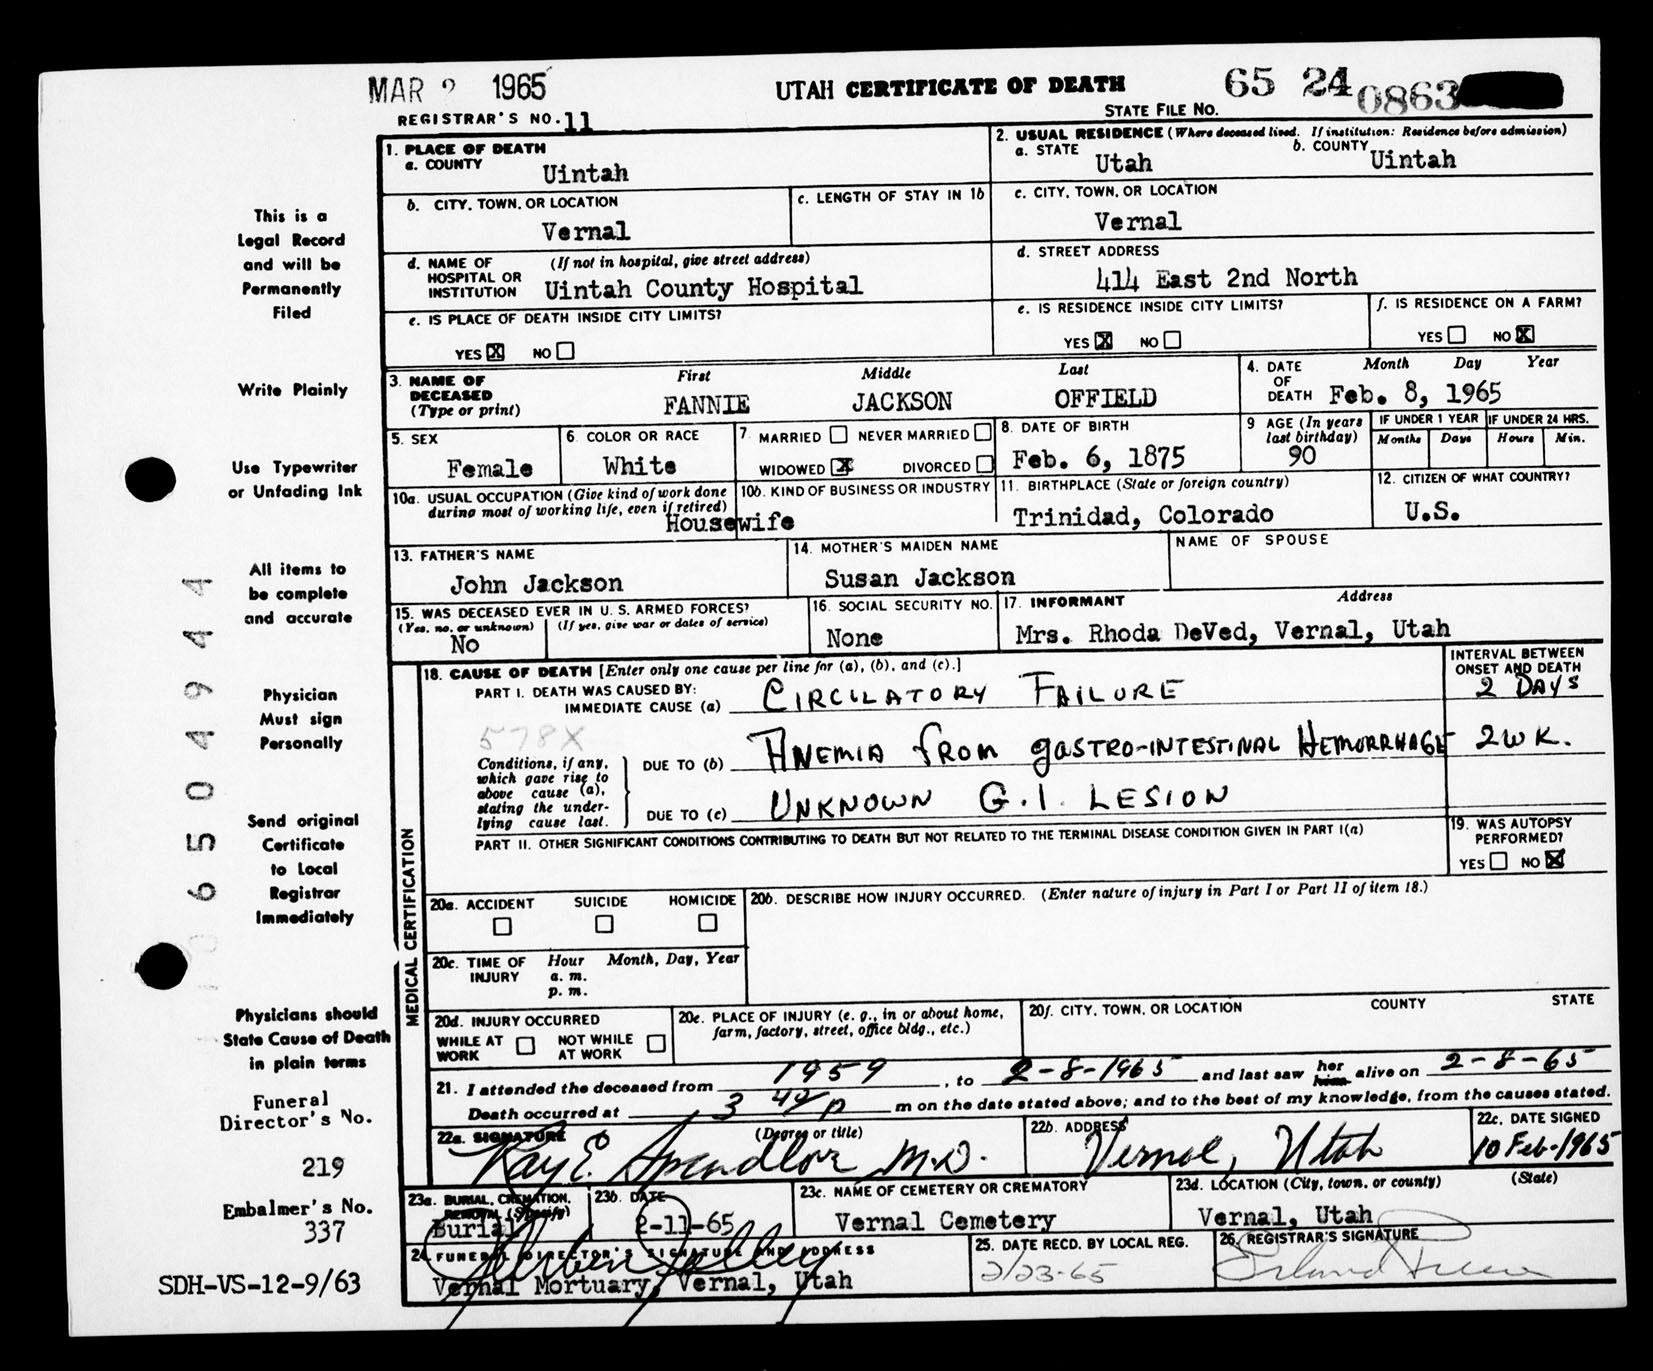 MAR 2 1965
UTAH CERTIFICATE OF DEATH
65 24 0863
STATE FILE NO.
REGISTRAR'S NO. 11
1. PLACE OF DEATH
a. COUNTY
Uintah
2. USUAL RESIDENCE (Where deceased lived. If institution: Residence before admission)
a. STATE
Utah
b. COUNTY
Uintah
b. CITY, TOWN, OR LOCATION
Vernal
c. LENGTH OF STAY IN 1b
c. CITY, TOWN, OR LOCATION
Vernal
d. NAME OF HOSPITAL OR INSTITUTION
(If not in hospital, give street address)
Uintah County Hospital
d. STREET ADDRESS
414 East 2nd North
e. IS PLACE OF DEATH INSIDE CITY LIMITS?
YES X NO
e. IS RESIDENCE INSIDE CITY LIMITS?
YES X NO
f. IS RESIDENCE ON A FARM?
YES NO X
3. NAME OF DECEASED (Type or print)
First Middle Last
FANNIE JACKSON OFFIELD
4. DATE OF DEATH
Month Day Year
Feb. 8, 1965
5. SEX
Female
6. COLOR OR RACE
White
7. MARRIED NEVER MARRIED
WIDOWED X DIVORCED
8. DATE OF BIRTH
Feb. 6, 1875
9 AGE (In years last birthday)
90
IF UNDER 1 YEAR
Months Days
IF UNDER 24 HRS.
Hours Min.
10a. USUAL OCCUPATION (Give kind of work done during most of working life, even if retired)
10b. KIND OF BUSINESS OR INDUSTRY
Housewife
11. BIRTHPLACE (State or foreign country)
Trinidad, Colorado
12. CITIZEN OF WHAT COUNTRY?
U.S.
13. FATHER'S NAME
John Jackson
14. MOTHER'S MAIDEN NAME
Susan Jackson
NAME OF SPOUSE
15. WAS DECEASED EVER IN U. S. ARMED FORCES?
(Yes, no, or unknown) (If yes, give war or dates of service)
No
16. SOCIAL SECURITY NO.
None
17. INFORMANT Address
Mrs. Rhoda DeVed, Vernal, Utah
MEDICAL CERTIFICATION
18. CAUSE OF DEATH [Enter only one cause per line for (a), (b), and (c).]
INTERVAL BETWEEN ONSET AND DEATH
PART I. DEATH WAS CAUSED BY:
IMMEDIATE CAUSE (a) CIRCULATORY FAILURE 2 DAYS
578X
Conditions, if any, which gave rise to above cause (a), stating the underlying cause last.
DUE TO (b) ANEMIA FROM GASTRO-INTESTINAL HEMORRHAGE 2 WK.
DUE TO (c) UNKNOWN G.I. LESION
PART II. OTHER SIGNIFICANT CONDITIONS CONTRIBUTING TO DEATH BUT NOT RELATED TO THE TERMINAL DISEASE CONDITION GIVEN IN PART I(a)
19. WAS AUTOPSY PERFORMED?
YES NO X
20a. ACCIDENT SUICIDE HOMICIDE
20b. DESCRIBE HOW INJURY OCCURRED. (Enter nature of injury in Part I or Part II of item 18.)
20c. TIME OF INJURY
Hour Month, Day, Year
a. m.
p. m.
20d. INJURY OCCURRED
WHILE AT WORK NOT WHILE AT WORK
20e. PLACE OF INJURY (e. g., in or about home, farm, factory, street, office bldg., etc.)
20f. CITY, TOWN, OR LOCATION COUNTY STATE
21. I attended the deceased from 1959, to 2-8-1965 and last saw her him alive on 2-8-65
Death occurred at 3 42 p m on the date stated above; and to the best of my knowledge, from the causes stated.
22a. SIGNATURE (Degree or title)
Ray E. Spendlove M.D.
22b. ADDRESS
Vernal, Utah
22c. DATE SIGNED
10 Feb-1965
23a. BURIAL, CREMATION, REMOVAL (Specify)
Burial
23b. DATE
2-11-65
23c. NAME OF CEMETERY OR CREMATORY
Vernal Cemetery
23d. LOCATION (City, town, or county) (State)
Vernal, Utah
24. FUNERAL DIRECTOR'S SIGNATURE AND ADDRESS
Vernal Mortuary, Vernal, Utah
25. DATE RECD. BY LOCAL REG.
2/23-65
26. REGISTRAR'S SIGNATURE
This is a
Legal Record
and will be
Permanently
Filed
Write Plainly
Use Typewriter
or Unfading Ink
All items to
be complete
and accurate
Physician
Must sign
Personally
Send original
Certificate
to Local
Registrar
Immediately
Physicians should
State Cause of Death
in plain terms
Funeral
Director's No.
219
Embalmer's No.
337
SDH-VS-12-9/63
65 04944